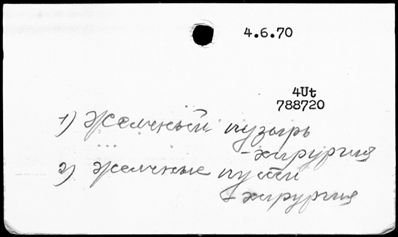 4.6.70
4Ut
788720
1) Желчный пузырь
- хирургия
2) Желчные пути
- хирургия